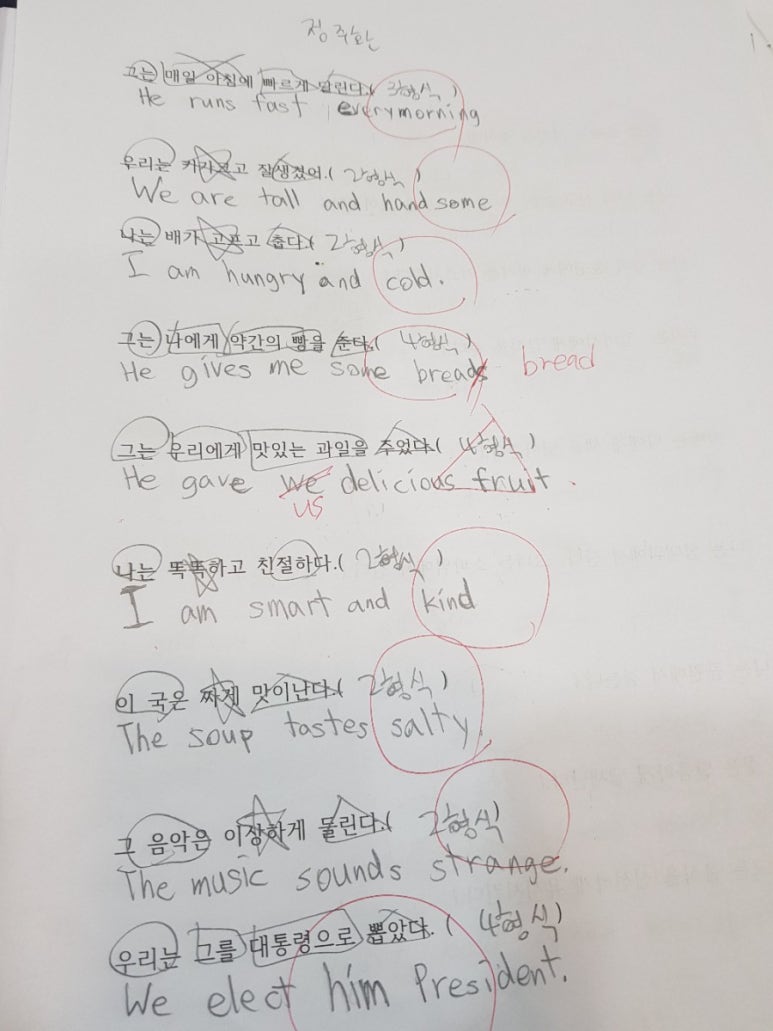 정주환
그는 매일 아침에 빠르게 달린다.( 3형식 )
He runs fast everymorning
우리는 키가크고 잘생겼어.( 2형식 )
We are tall and handsome
나는 배가 고프고 춥다.( 2형식 )
I am hungry and cold.
그는 나에게 약간의 빵을 준다.( 4형식 )
He gives me some breads bread
그는 우리에게 맛있는 과일을 주었다.( 4형식 )
He gave we delicious fruit.
us
나는 똑똑하고 친절하다.( 2형식 )
I am smart and kind
이 국은 짜게 맛이난다.( 2형식 )
The soup tastes salty.
그 음악은 이상하게 들린다.( 2형식
The music sounds strange.
우리는 그를 대통령으로 뽑았다. ( 4형식 )
We elect him President.